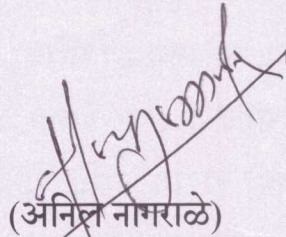 (अनिल नागराळे)